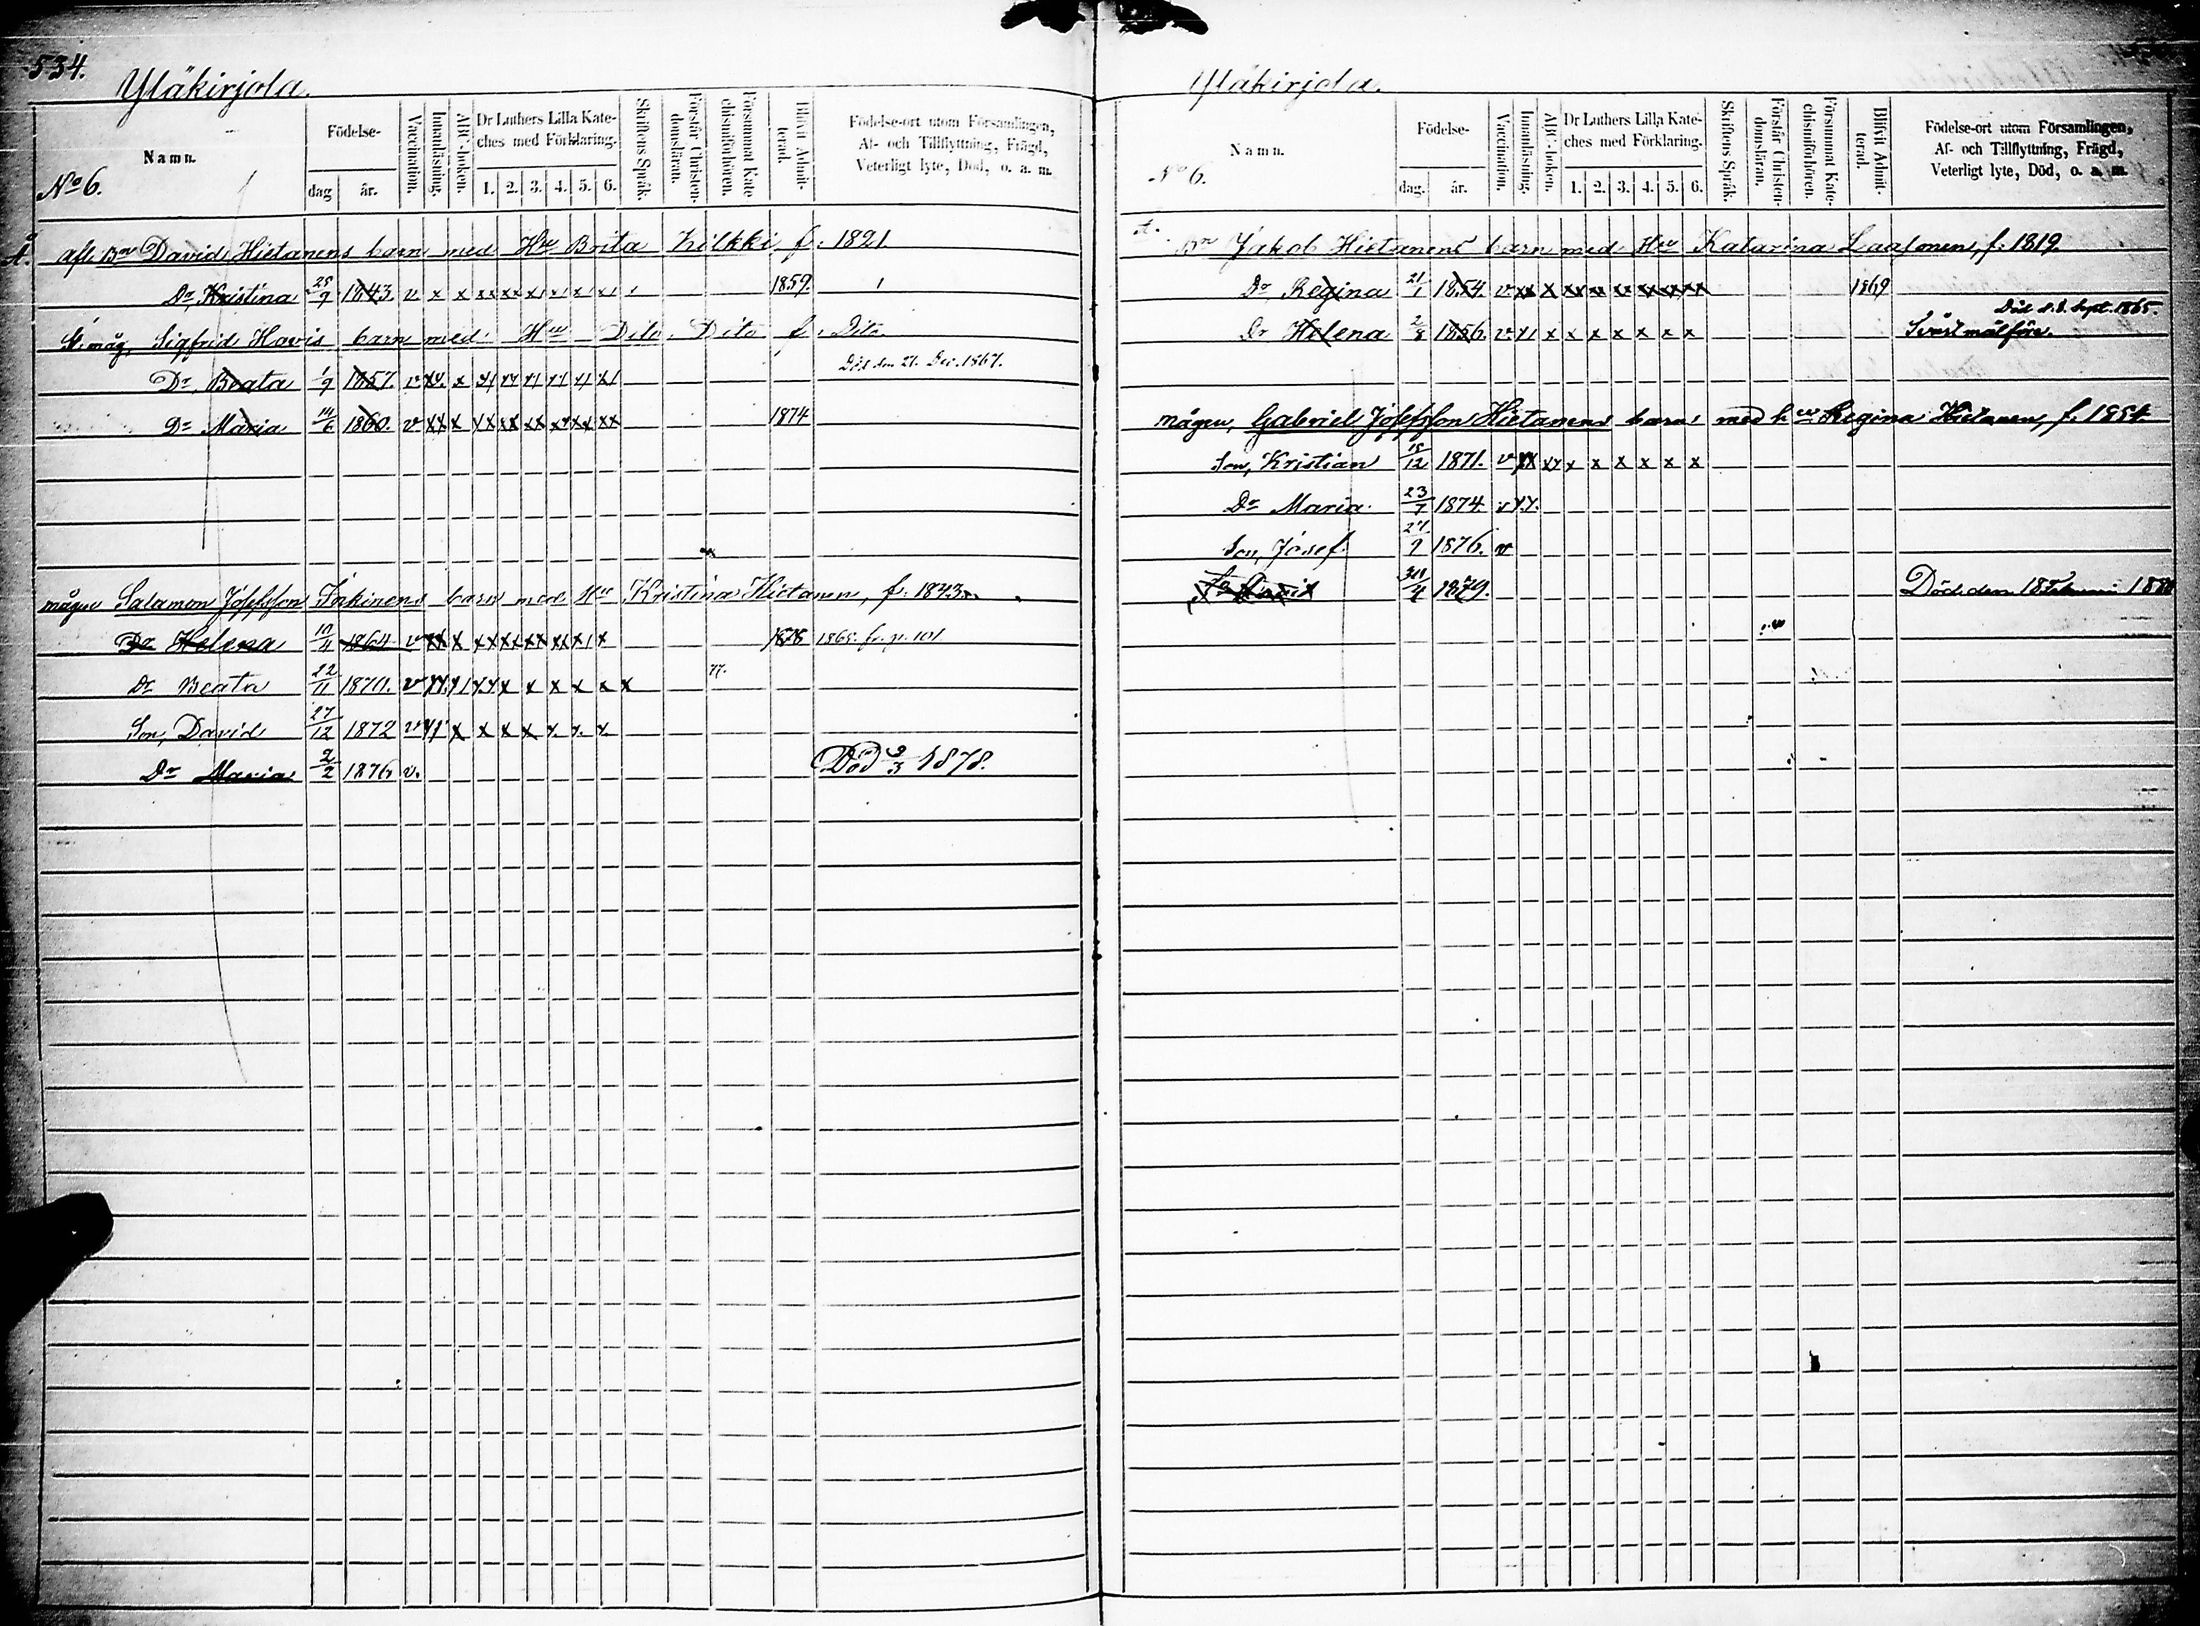 534.
Yläkirjola.
Namn.
No 6.
Födelse-
dag
år.
Vaccination.
Innanläsning.
ABC-boken.
Dr Luthers Lilla Kate-
ches med Förklaring.
1. 2. 3. 4. 5. 6.
Skriftens Språk.
Förstår Christen-
domsläran.
Försummat Kate-
chismiförhören.
Blifvit Admit-
terad.
Födelse-ort utom Församlingen,
Af- och Tillflyttning, Frägd,
Veterligt lyte, Död, o. a. m.
A. afl. Bn David Hietanens barn med Hu Brita Kilkki, f. 1821.
Dr, Kristina 25/9 1843. v x x xx xx x x x x 1859.
St. måg, Sigfrid Havis barn med Hu Dito Dito f. Dito
Dr, Beata 1/9 1857. v Död den 21. Dec. 1867.
Dr Maria 14/6 1860. v xx x xx xx xx xx xx xx 1874
mågen Salamon Josefsson Inkinens barn med Hu Kristina Hietanen, f. 1843.
Dr Helena 10/4 1864 v xx x xx xx xx xx x x 1878 1865. fr. p. 101
Dr Beata 22/11 1870. v x x x x x x 77.
Son, David 27/12 1872 v x x x x x x x
Dr Maria 2/2 1876 v. Död 2/3 1878.
Yläkirjola.
Namn.
No 6.
Födelse-
dag.
år.
Vaccination.
Innanläsning.
ABC-boken.
Dr Luthers Lilla Kate-
ches med Förklaring.
1. 2. 3. 4. 5. 6.
Skriftens Språk.
Förstår Christen-
domsläran.
Försummat Kate-
chismiförhören.
Blifvit Admit-
terad.
Födelse-ort utom Församlingen,
Af- och Tillflyttning, Frägd,
Veterligt lyte, Död, o. a. m.
A. Bn Jakob Hietanens barn med Hu Katarina Laasonen, f. 1819.
Dr Regina 21/1 1854. v xx x xx xx xx xx xx xx 1869
Död d. 8. Sept. 1865.
Dr Helena 2/8 1856. v x x x x x x x Svårt målföre.
mågen, Gabriel Josefsson Hietanens barn med hu Regina Hietanen, f. 1854.
Son, Kristian 15/12 1871. v xx xx x x x x x x
Dr Maria 23/7 1874. v
Son, Josef. 27/9 1876. v
1879. Död den 18